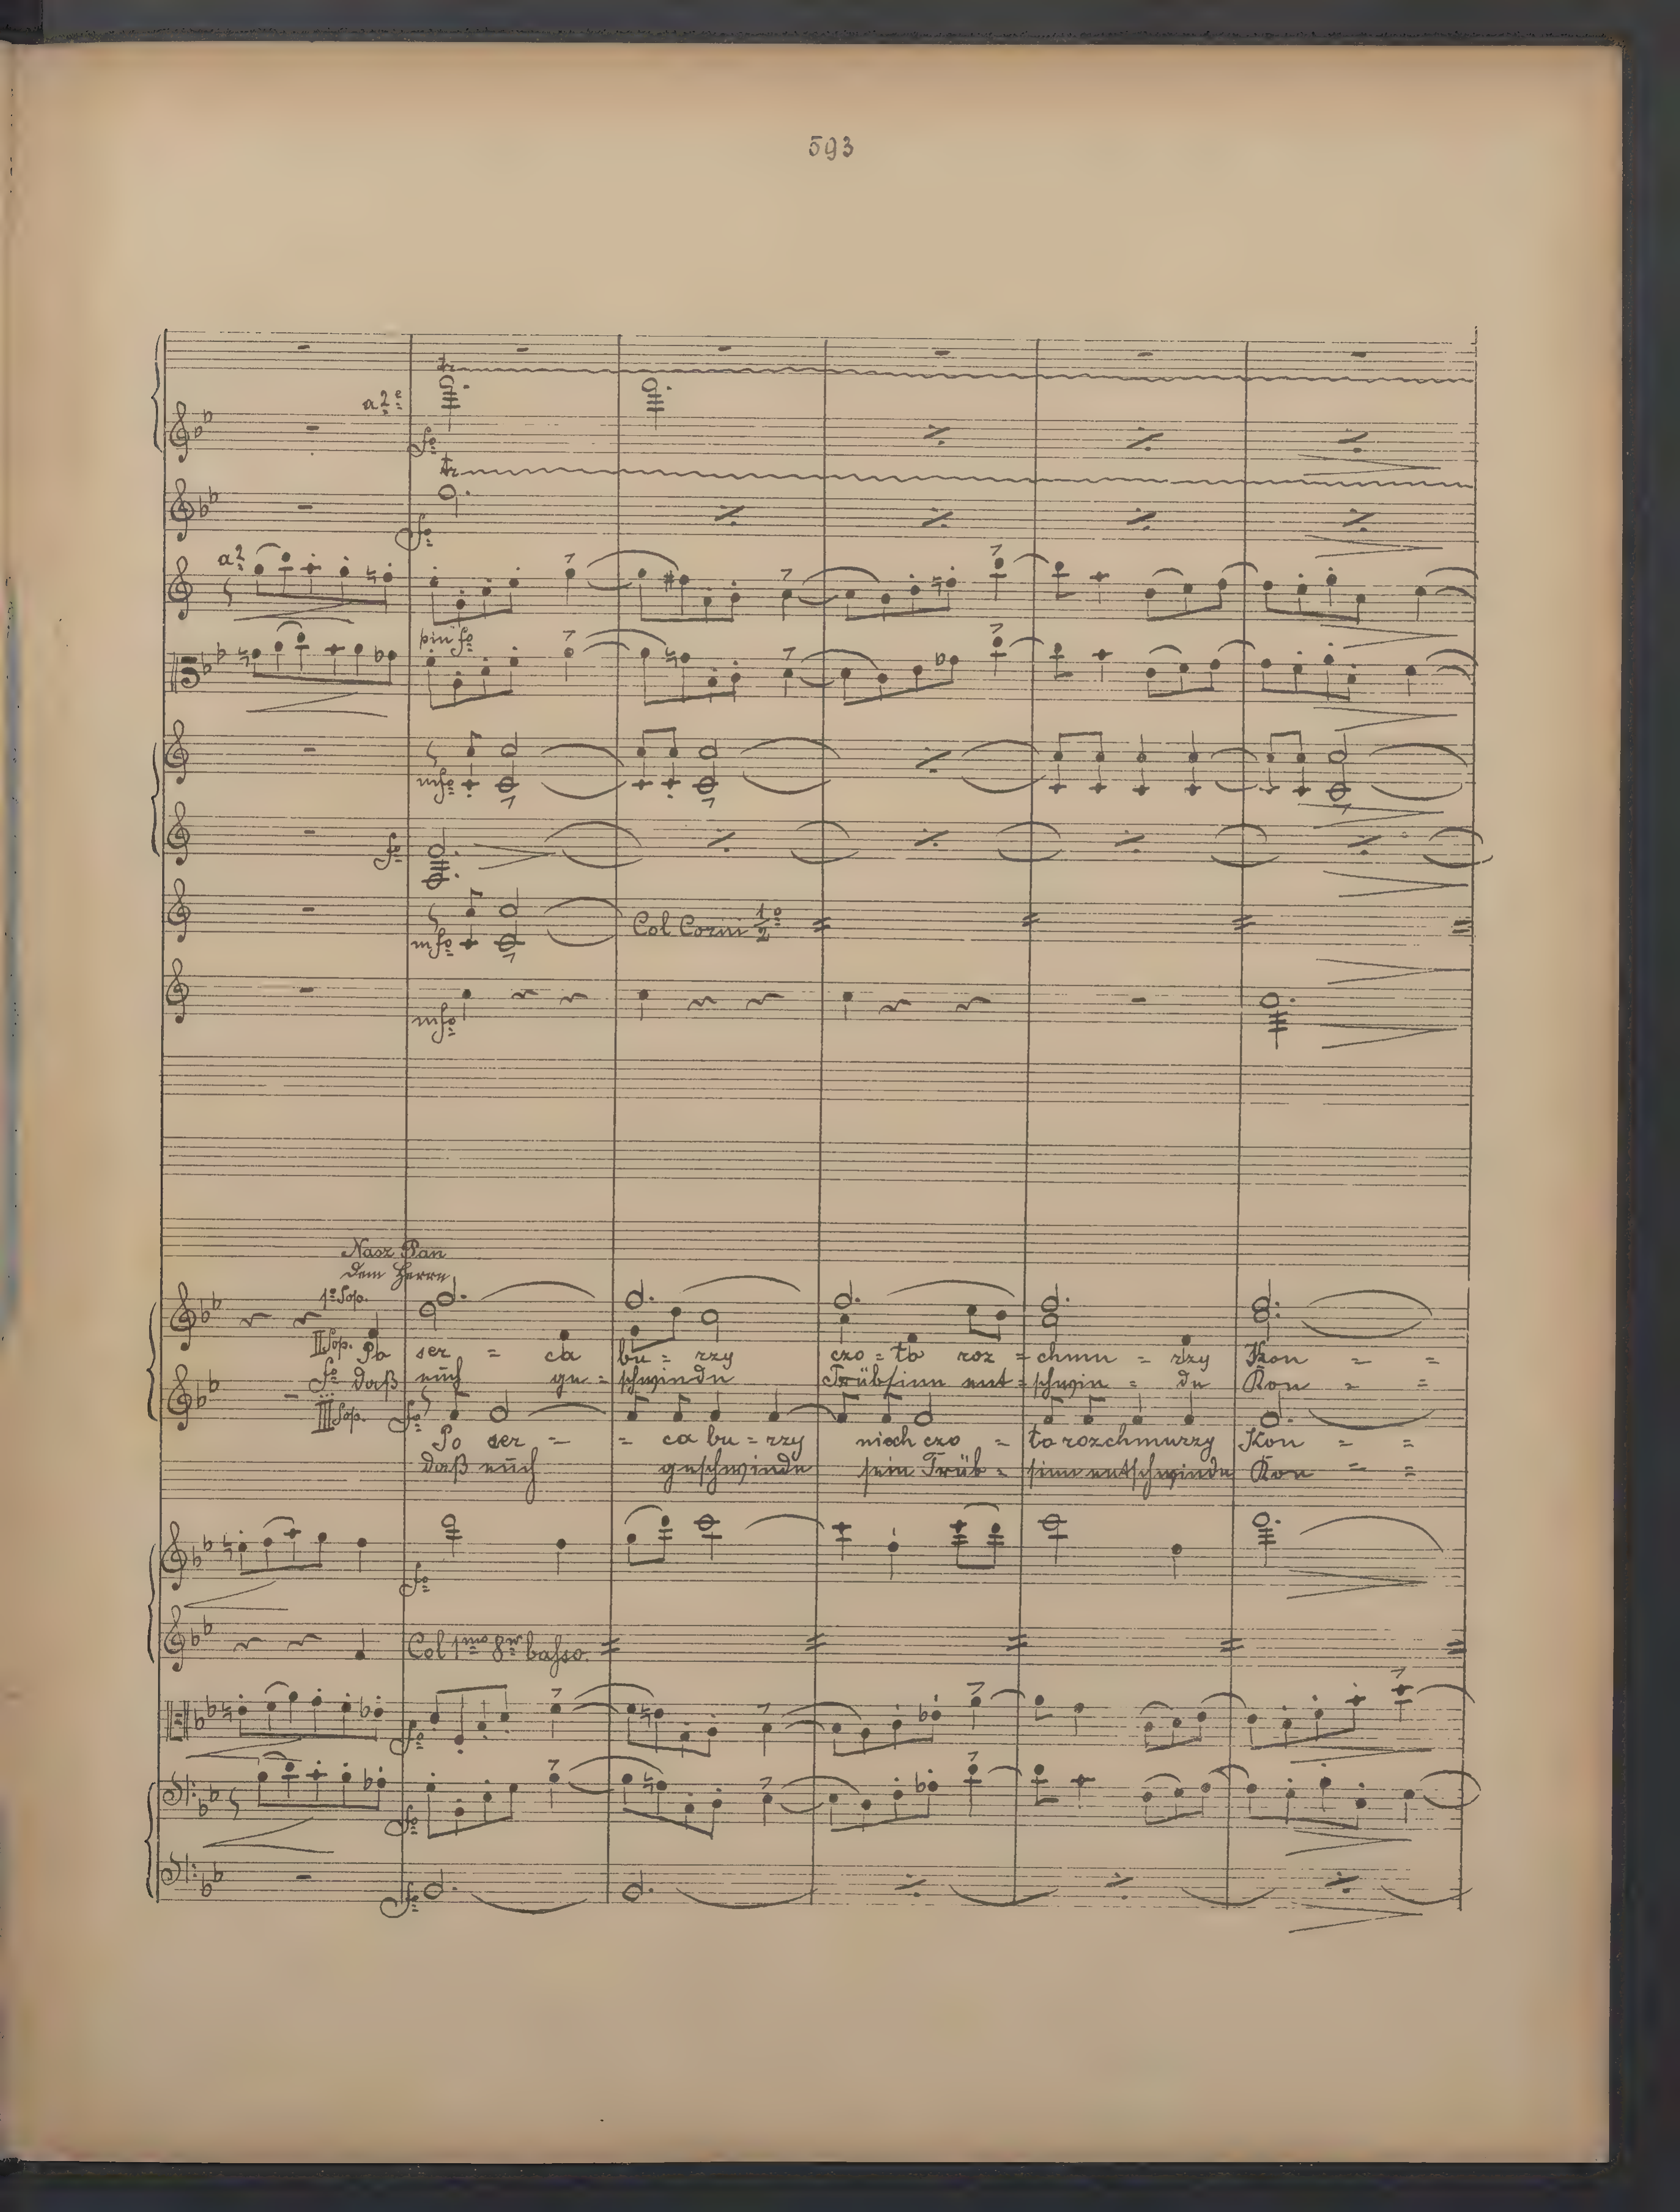 593
tr
a 2e
fo
tr
fo
a 2
più fo
mfo
fo
mfo Col Corni 1o 2
mfo
Nasz Pan
Dem Herrn
1o Sop.
II Sop. Po ser = ca bu = rzy czo = ło roz = chmu = rzy Kon = =
fo daß euch ge = schwinde Trübsinn ent = schwin = de Kon = =
III Sop. fo
Po ser = = ca bu = rzy niech czo = ło rozchmurzy Kon = =
daß euch geschwinde sein Trüb = sinn entschwinde Kon = =
fo
Col 1mo 8va basso.
fo
fo
fo